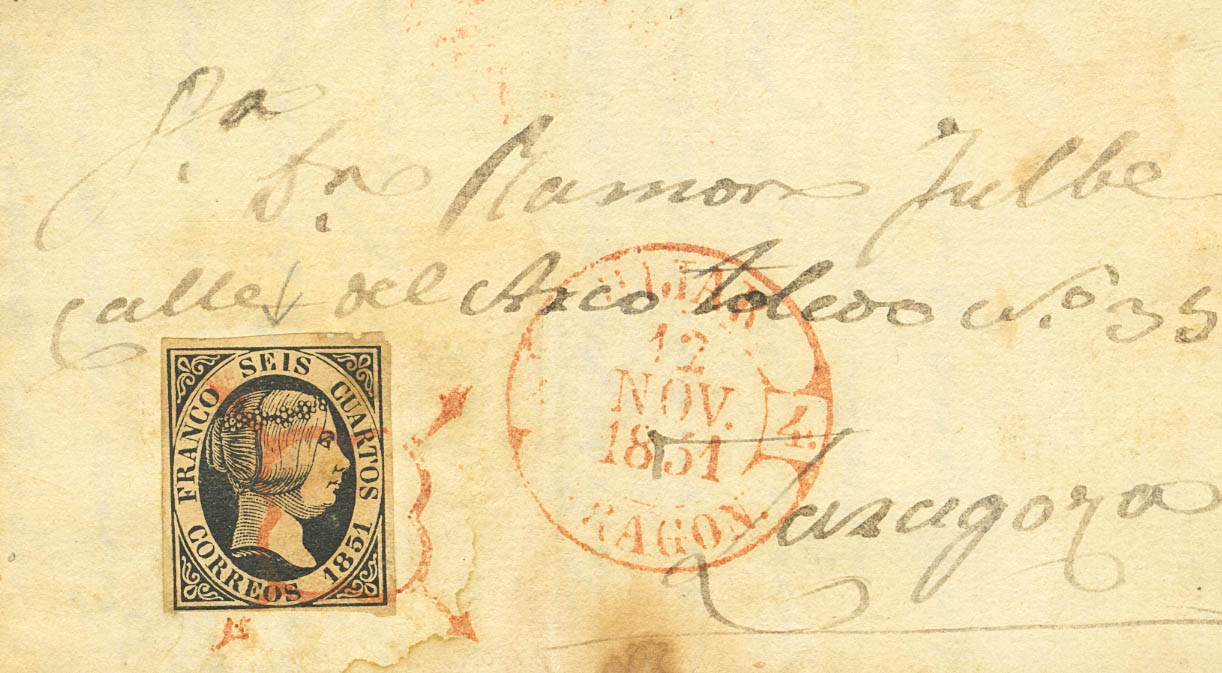 Sn. Dn. Ramon Julbe
Calle del Arco Toledo Nº. 35
Zaragoza
FRANCO SEIS CUARTOS
CORREOS 1851
12
NOV.
1851
4.
RAGON.